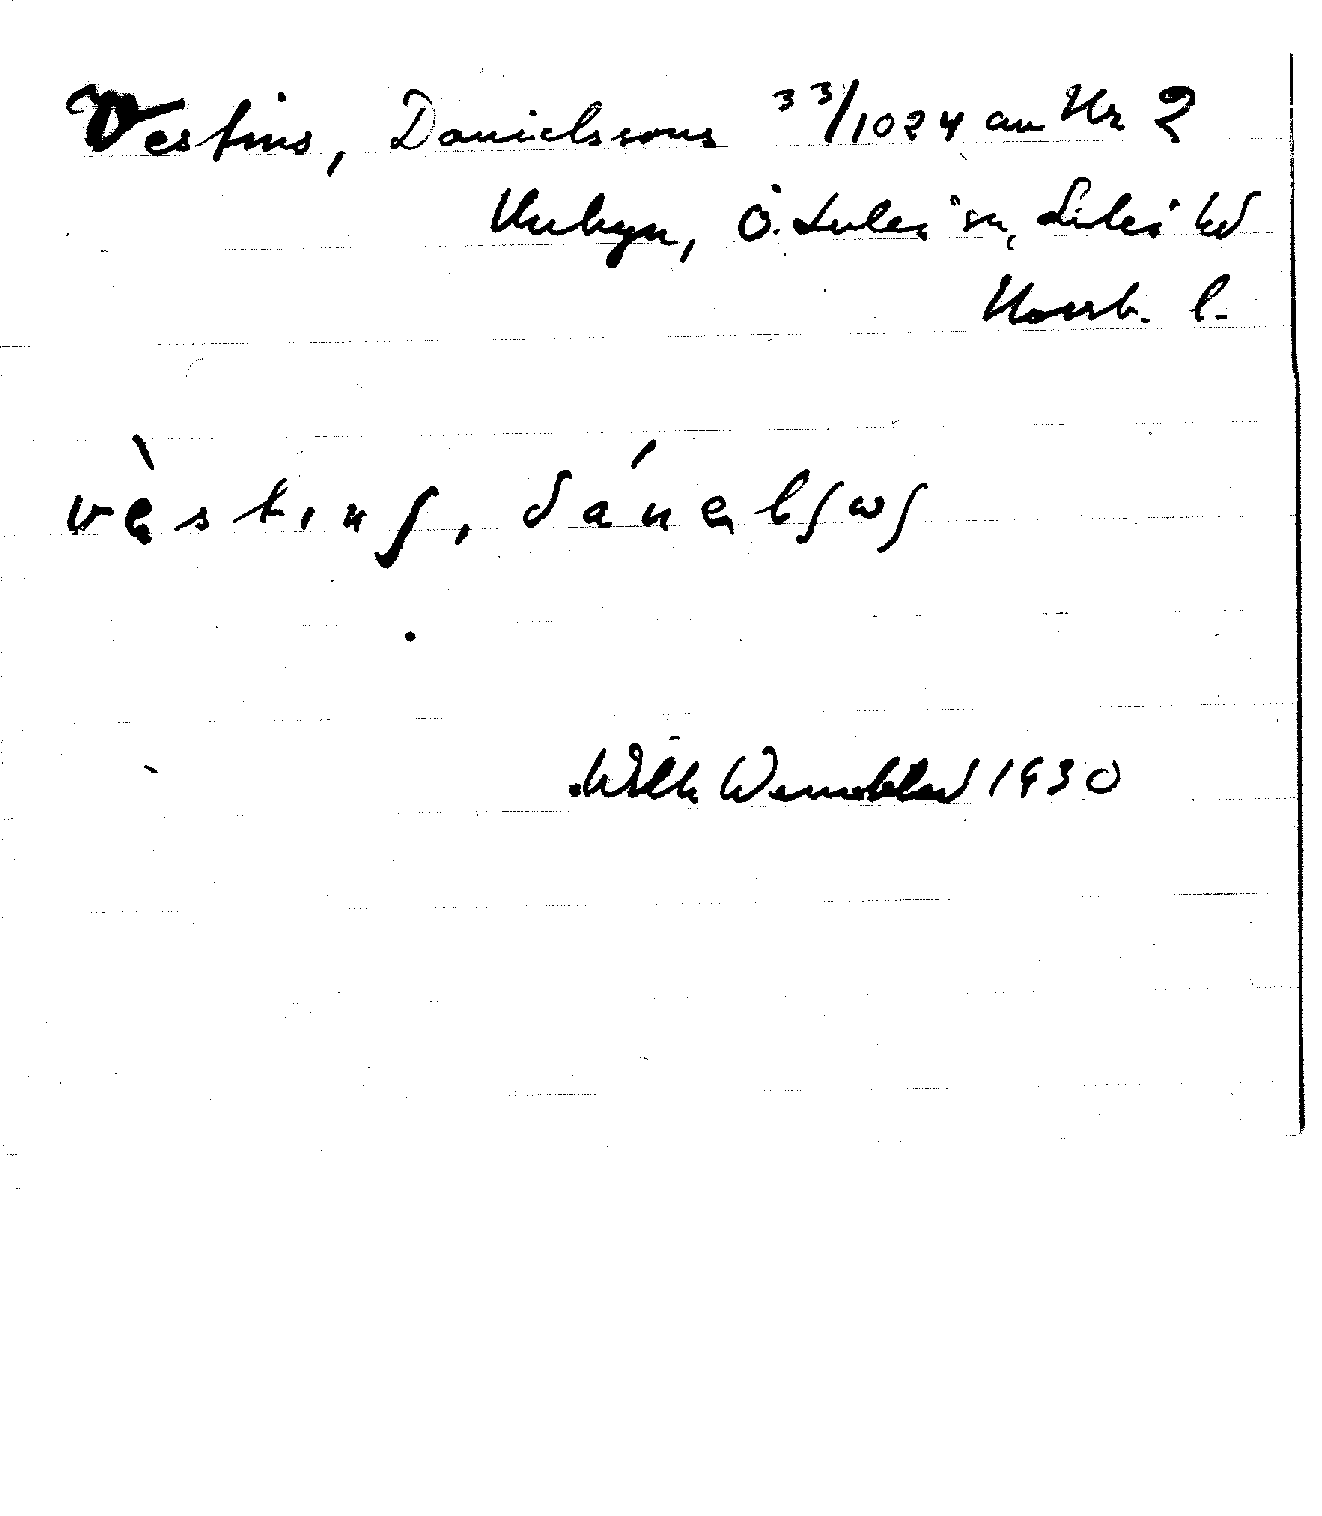 Vestins, Danielssons 33/1024 av Nr 2
Unbyn, Ö. Luleå sn, Luleå hd
Norrb. l.
vèstinʃ, dánelʃωʃ
Wilh Wennebläd 1930